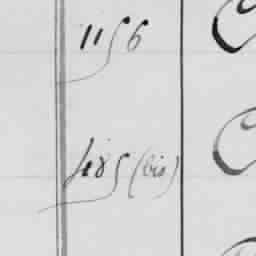 1156
485 (bis)